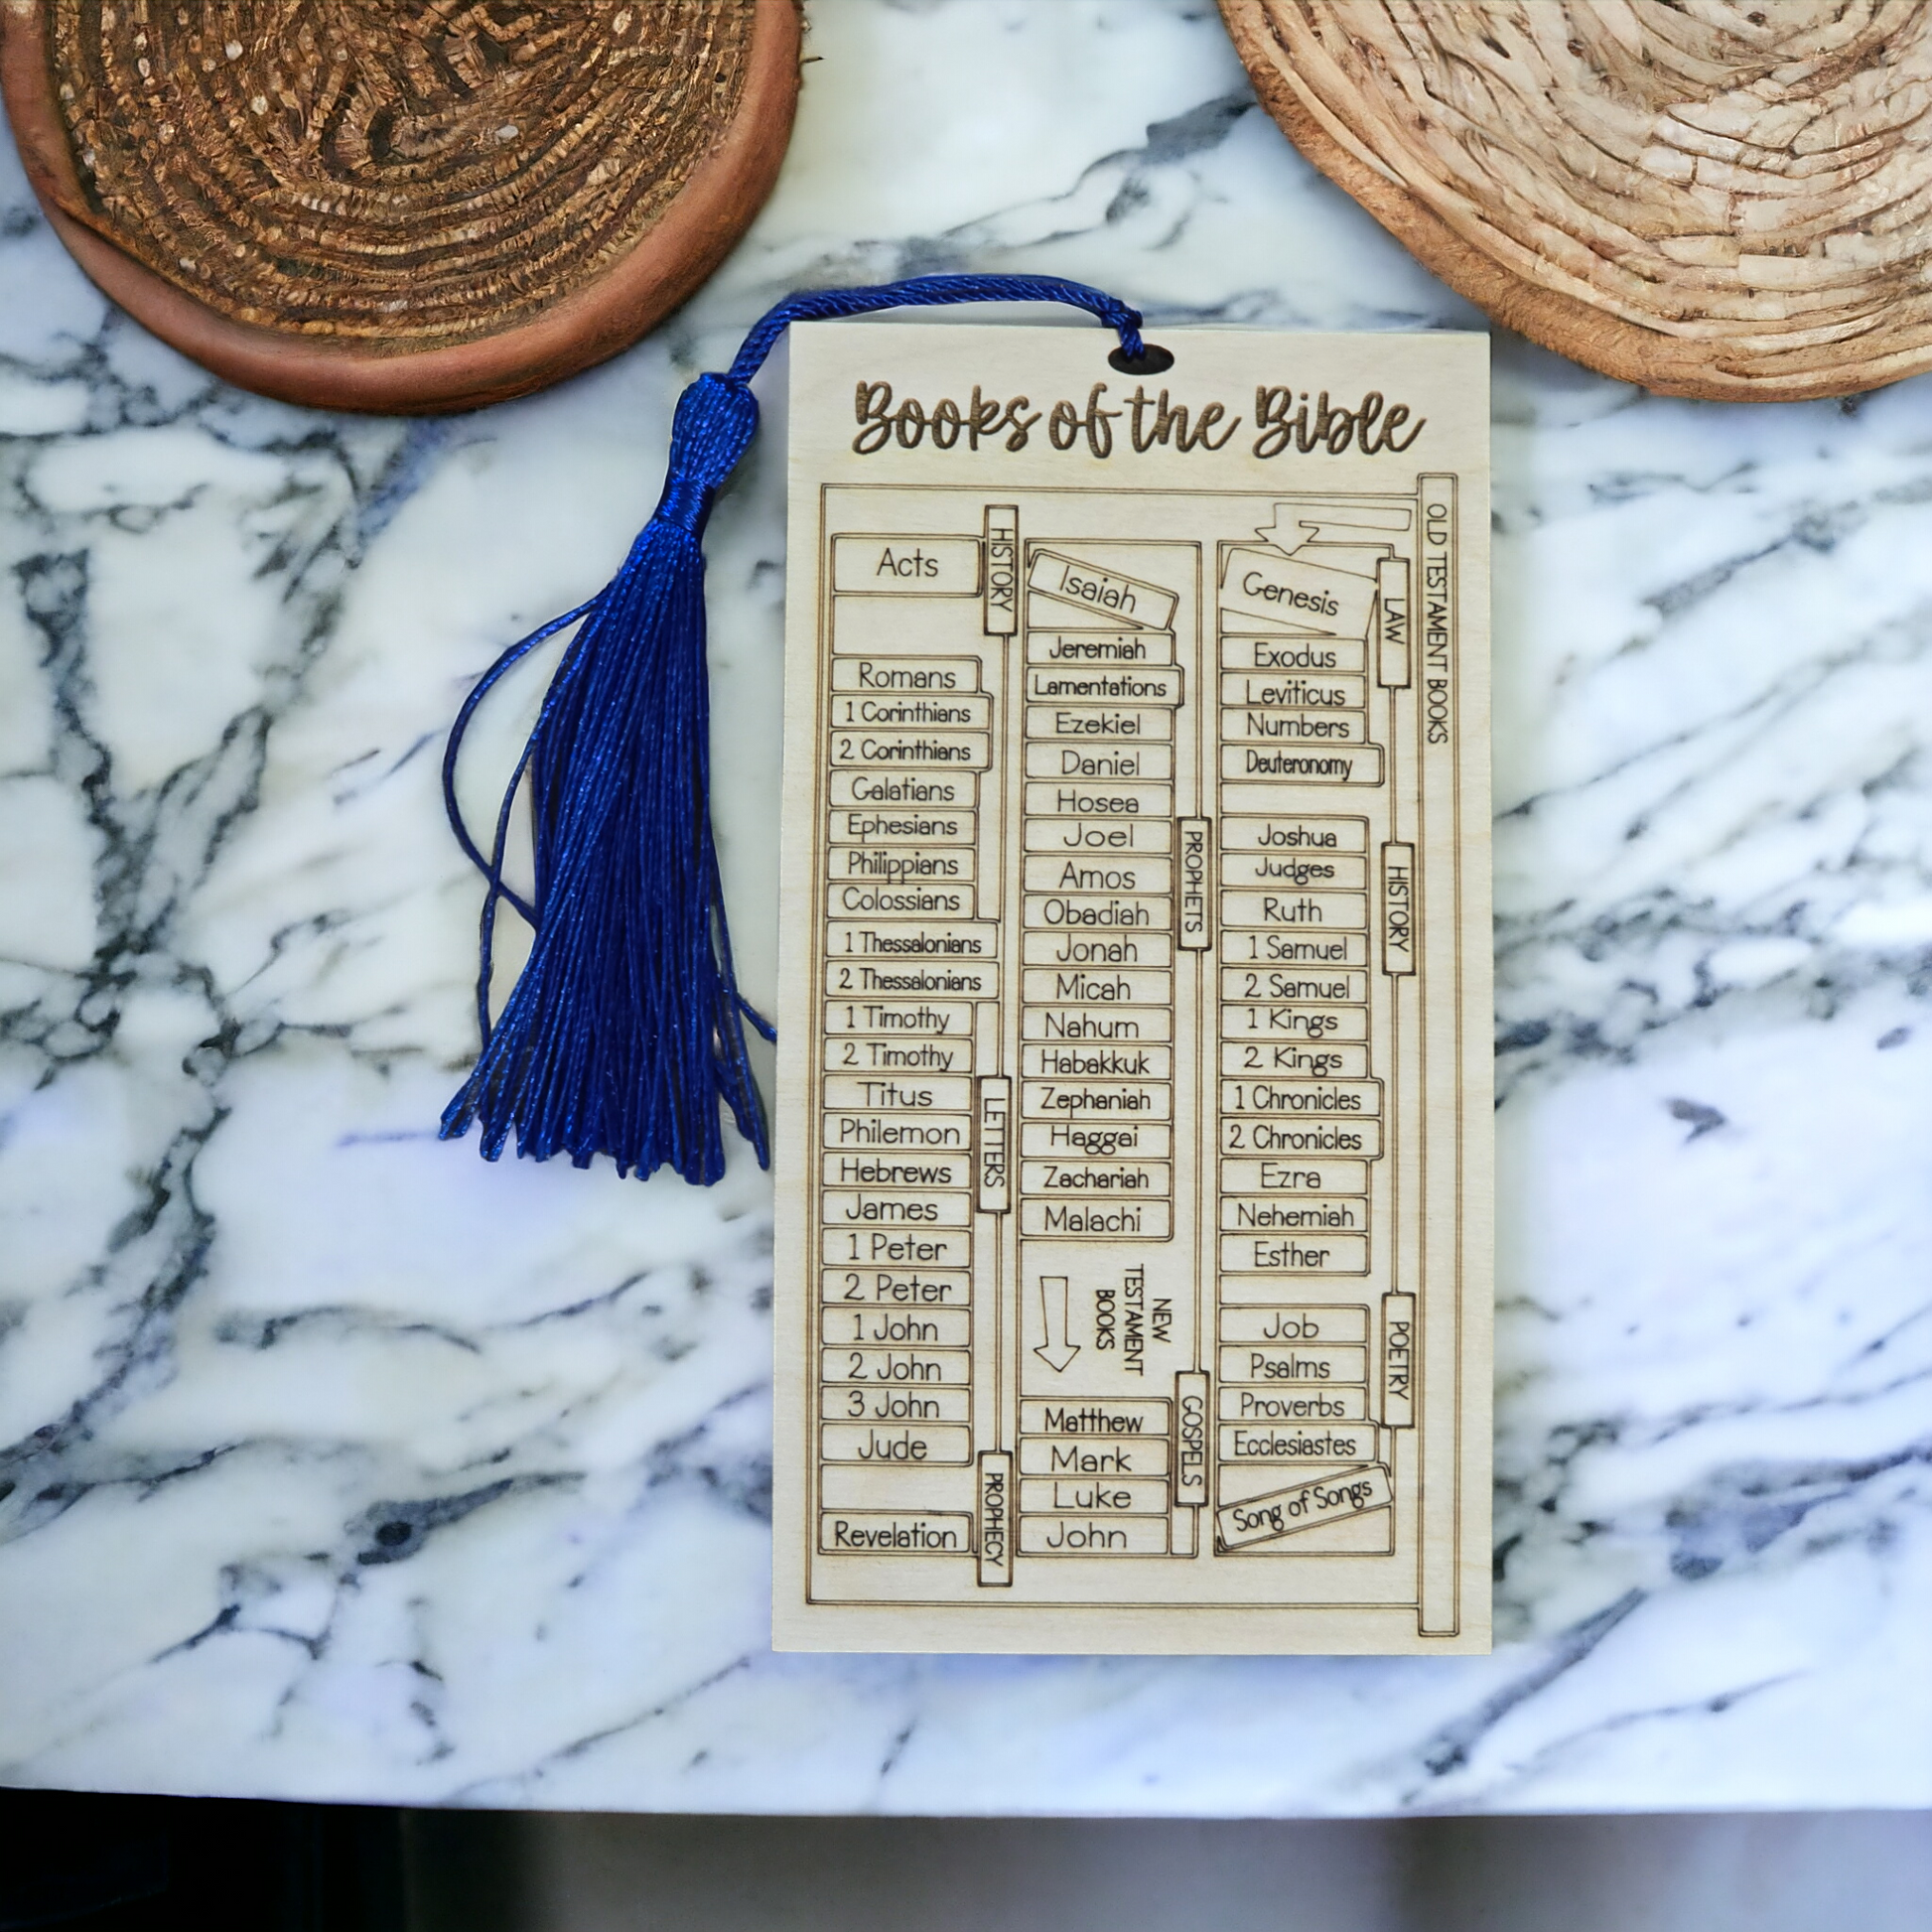 Books of the Bible
OLD TESTAMENT BOOKS
LAW
Genesis
Exodus
Leviticus
Numbers
Deuteronomy
HISTORY
Joshua
Judges
Ruth
1 Samuel
2 Samuel
1 Kings
2 Kings
1 Chronicles
2 Chronicles
Ezra
Nehemiah
Esther
POETRY
Job
Psalms
Proverbs
Ecclesiastes
Song of Songs
PROPHETS
Isaiah
Jeremiah
Lamentations
Ezekiel
Daniel
Hosea
Joel
Amos
Obadiah
Jonah
Micah
Nahum
Habakkuk
Zephaniah
Haggai
Zachariah
Malachi
NEW
TESTAMENT
BOOKS
GOSPELS
Matthew
Mark
Luke
John
HISTORY
Acts
LETTERS
Romans
1 Corinthians
2 Corinthians
Galatians
Ephesians
Philippians
Colossians
1 Thessalonians
2 Thessalonians
1 Timothy
2 Timothy
Titus
Philemon
Hebrews
James
1 Peter
2 Peter
1 John
2 John
3 John
Jude
PROPHECY
Revelation